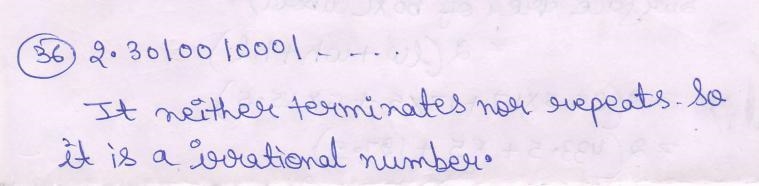 (36) 2.3010010001.....
It neither terminates nor repeats. So
it is a irrational number.